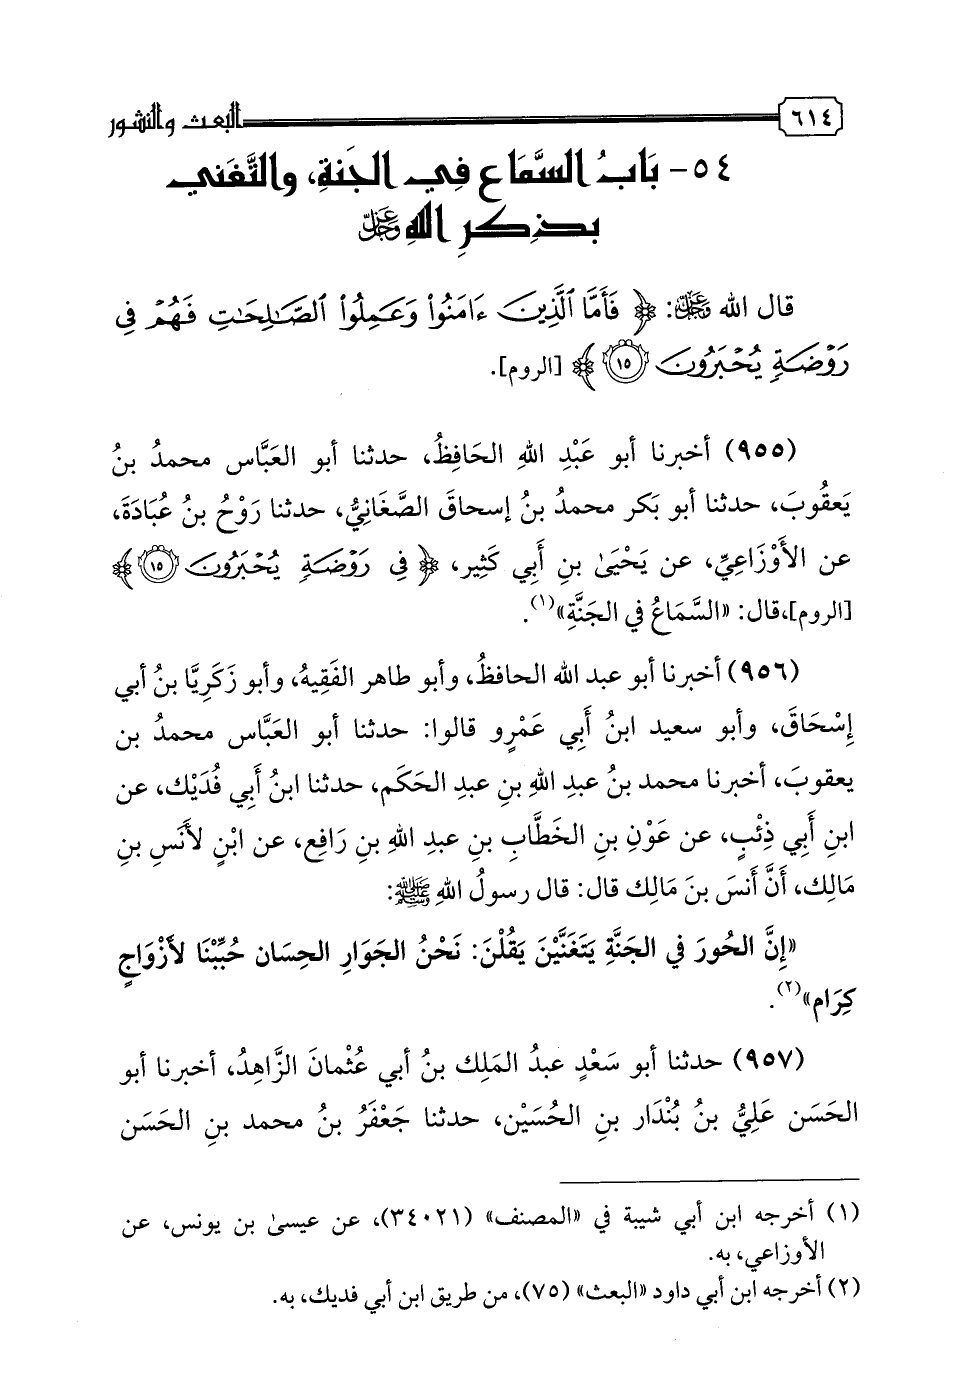 ٦١٤ البعث والنشور
٥٤- بَابُ السَّمَاعِ فِي الجَنةِ، والتَّغَني
بذِكرِ اللهِ عَزَّ وَجَلَّ
قال الله عَزَّ وَجَلَّ: ﴿ فَأَمَّا ٱلَّذِينَ ءَامَنُوا۟ وَعَمِلُوا۟ ٱلصَّـٰلِحَـٰتِ فَهُمْ فِى
رَوْضَةٍ يُحْبَرُونَ ١٥ ﴾ [الروم].
(٩٥٥) أخبرنا أبو عَبْدِ اللهِ الحَافِظُ، حدثنا أبو العَبَّاس محمدُ بنُ
يَعقُوبَ، حدثنا أبو بَكر محمدُ بنُ إسحاقَ الصَّغَانِيُّ، حدثنا رَوْحُ بنُ عُبَادَةَ،
عن الأَوْزَاعِيِّ، عن يَحْيَىٰ بنِ أَبِي كَثِير، ﴿ فِى رَوْضَةٍ يُحْبَرُونَ ١٥ ﴾
[الروم]،قال: «السَّمَاعُ في الجَنَّةِ»(١).
(٩٥٦) أخبرنا أبو عبد الله الحافظُ، وأبو طاهر الفَقِيهُ، وأبو زَكَرِيَّا بنُ أبي
إِسْحَاقَ، وأبو سعيد ابنُ أَبِي عَمْرٍو قالوا: حدثنا أبو العَبَّاس محمدُ بن
يعقوبَ، أخبرنا محمد بنُ عبدِ اللهِ بنِ عبدِ الحَكَم، حدثنا ابنُ أَبي فُدَيْك، عن
ابنِ أَبِي ذِئْبٍ، عن عَوْنِ بنِ الخَطَّابِ بنِ عبدِ اللهِ بنِ رَافِع، عن ابْنٍ لأَنَسِ بنِ
مَالِك، أَنَّ أَنسَ بنَ مَالِك قال: قال رسولُ اللهِ ﷺ:
«إِنَّ الحُورَ في الجَنَّةِ يَتَغَنَّيْنَ يَقُلْنَ: نَحْنُ الجَوَارِ الحِسَان حُبِّبْنَا لأَزْوَاجٍ
كِرَام»(٢).
(٩٥٧) حدثنا أبو سَعْدٍ عبدُ المَلِك بنُ أَبي عُثْمانَ الزَّاهِدُ، أخبرنا أبو
الحَسَن عَلِيُّ بنُ بُنْدَار بنِ الحُسَيْن، حدثنا جَعْفَرُ بنُ محمد بنِ الحَسَن
(١) أخرجه ابن أبي شيبة في «المصنف» (٣٤٠٢١)، عن عيسىٰ بن يونس، عن
الأوزاعي، به.
(٢) أخرجه ابن أبي داود «البعث» (٧٥)، من طريق ابن أبي فديك، به.